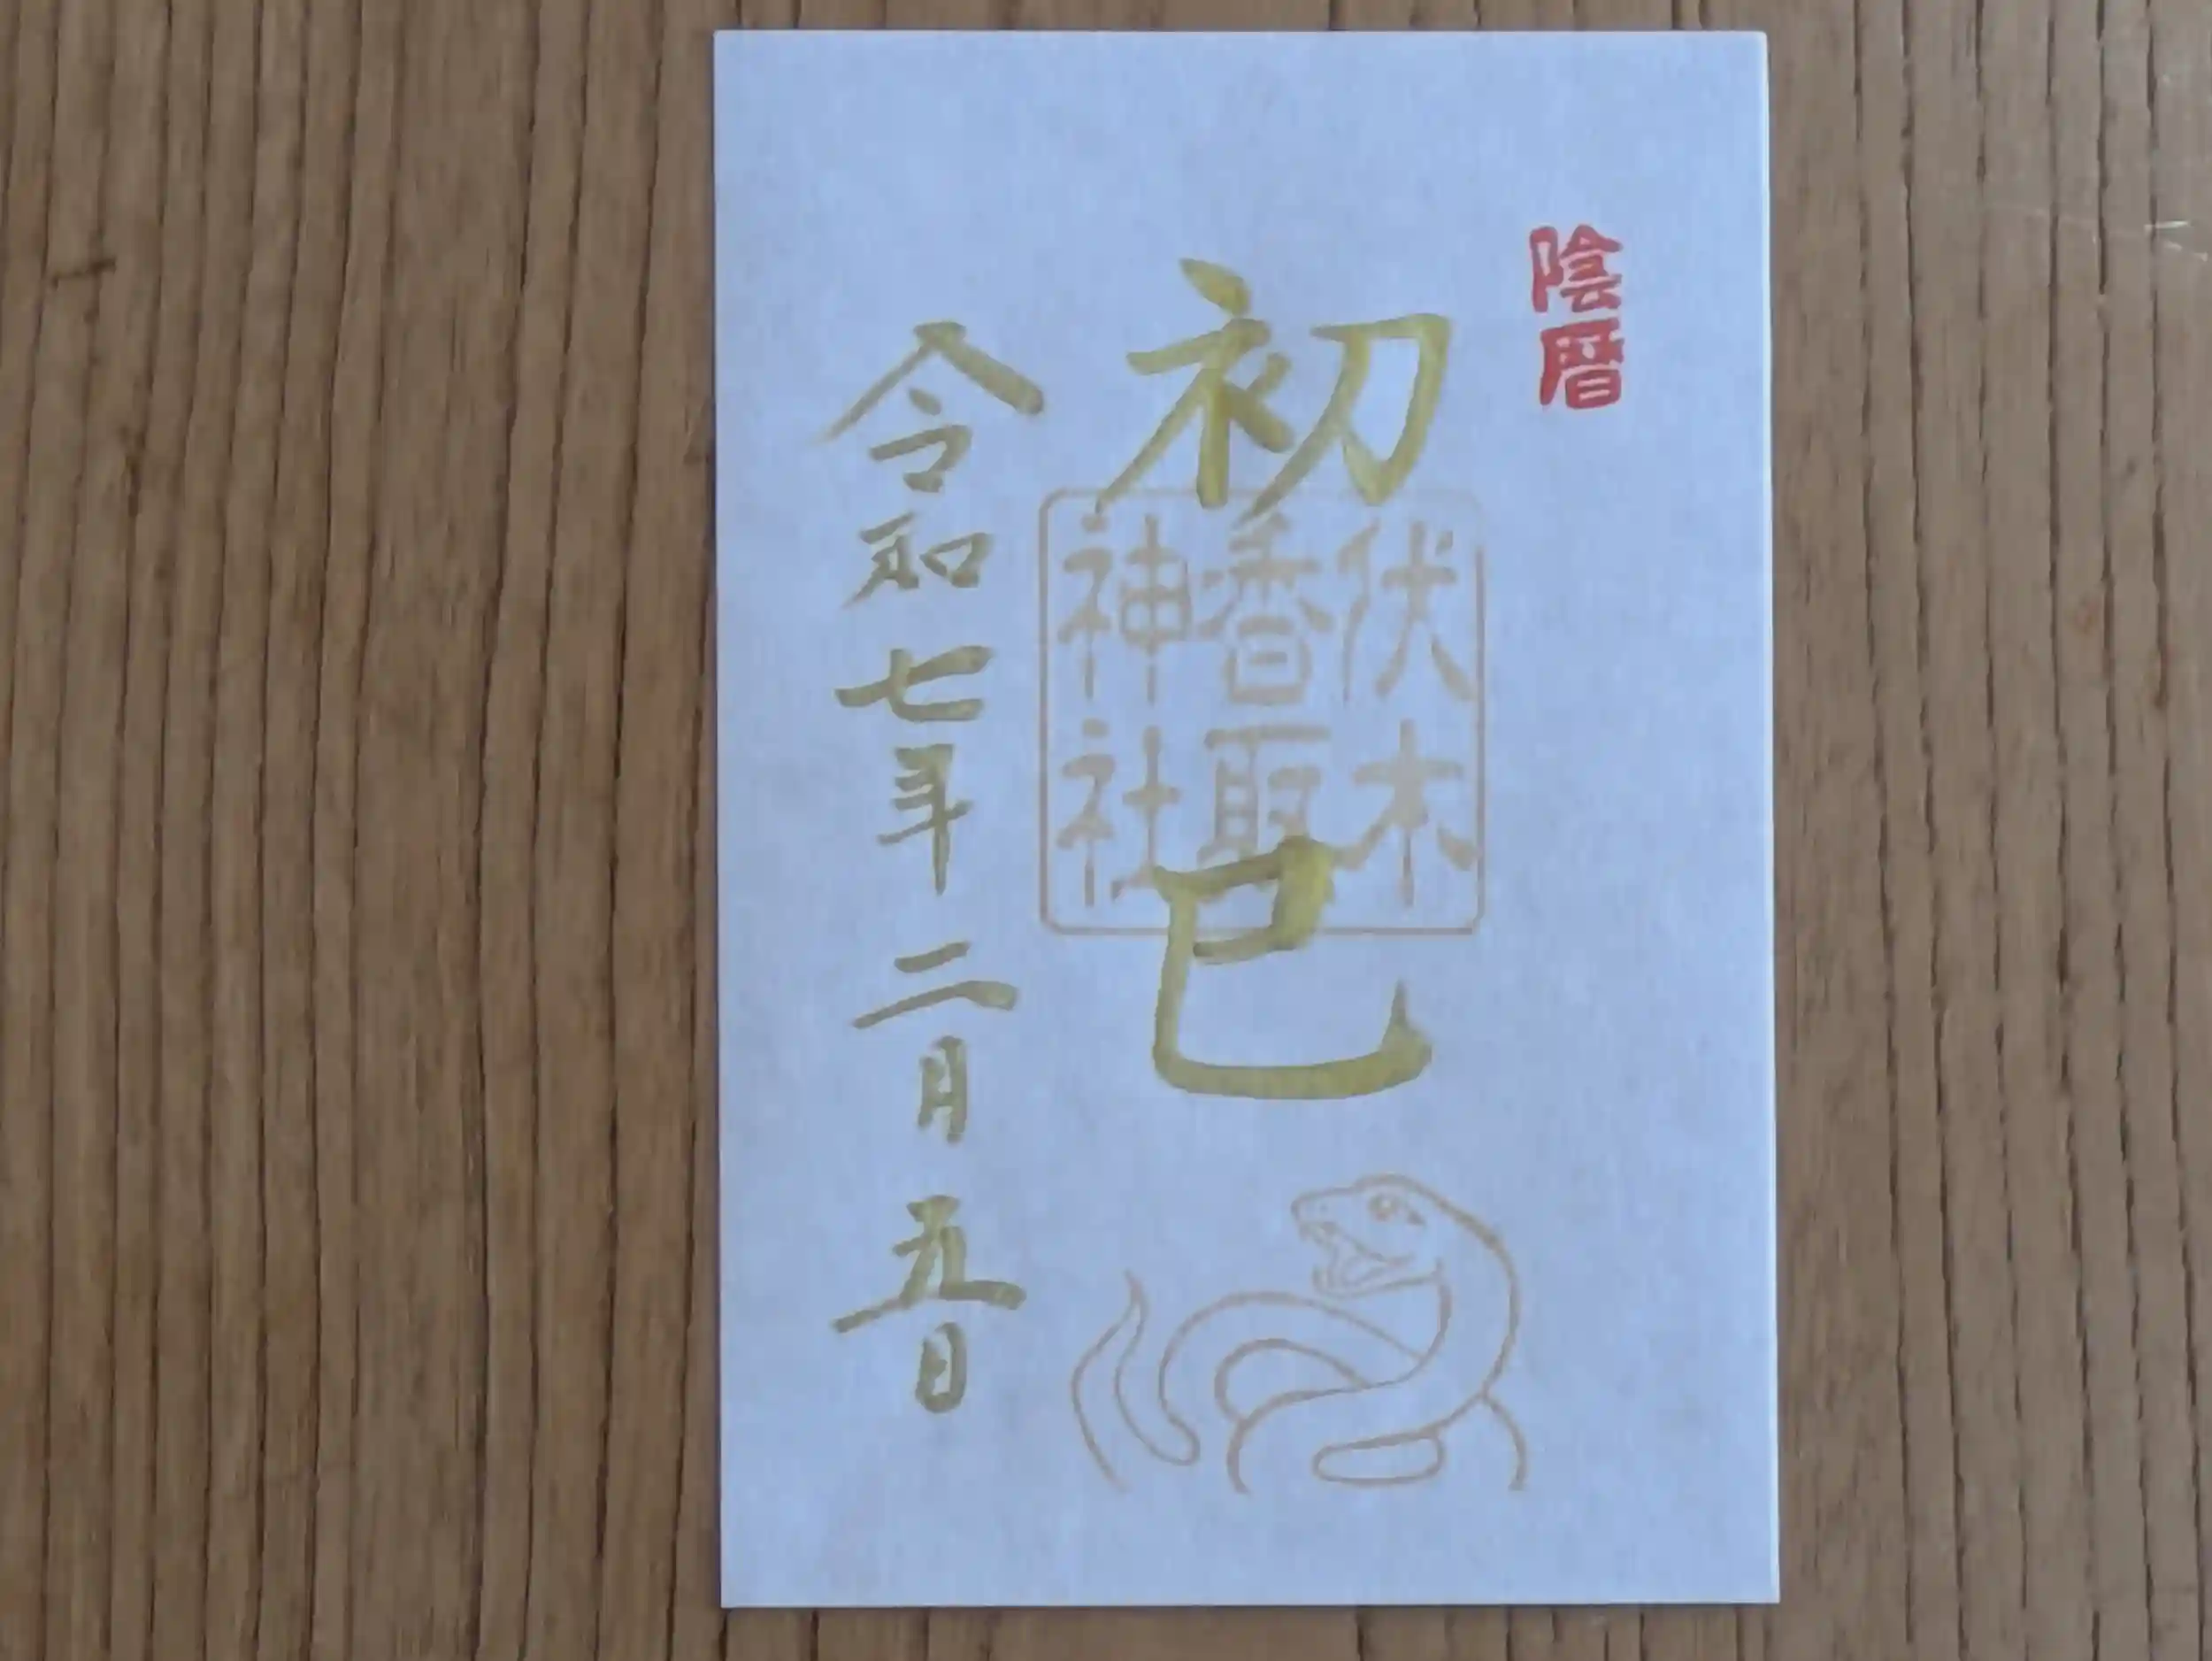 陰暦
初巳
伏木
香取
神社
令和七年二月五日